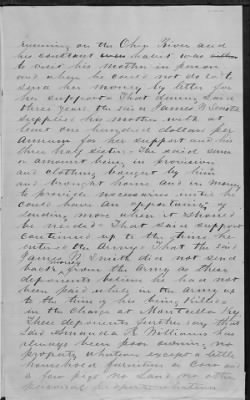 running on the Ohio River and
his constant habit was
to visit his mother in person
and when he could not do so to
send her money by letter for
her support That during said
three years the said James N Smith
supplied his mother with at
least one hundred dollars per
annum for her support and his
three half sisters The said sum
or amount being in provision
and clothing bought by him
and brought home and in money
to provide necessaries until he
could have an opportunity of
sending more when it should
be needed That said support
continued up to the time he
entered the Army That the said
James N Smith did not send
back money from the Army as these
deponents believe he had not
been paid while in the army up
to the time of his being killed
in the charge at Monticello Ky
These deponents further say that
said Amanda R Williams has
always been poor owning no
property whatever except a little
household furniture a Cow and
a few pigs no land no other
personal property whatever